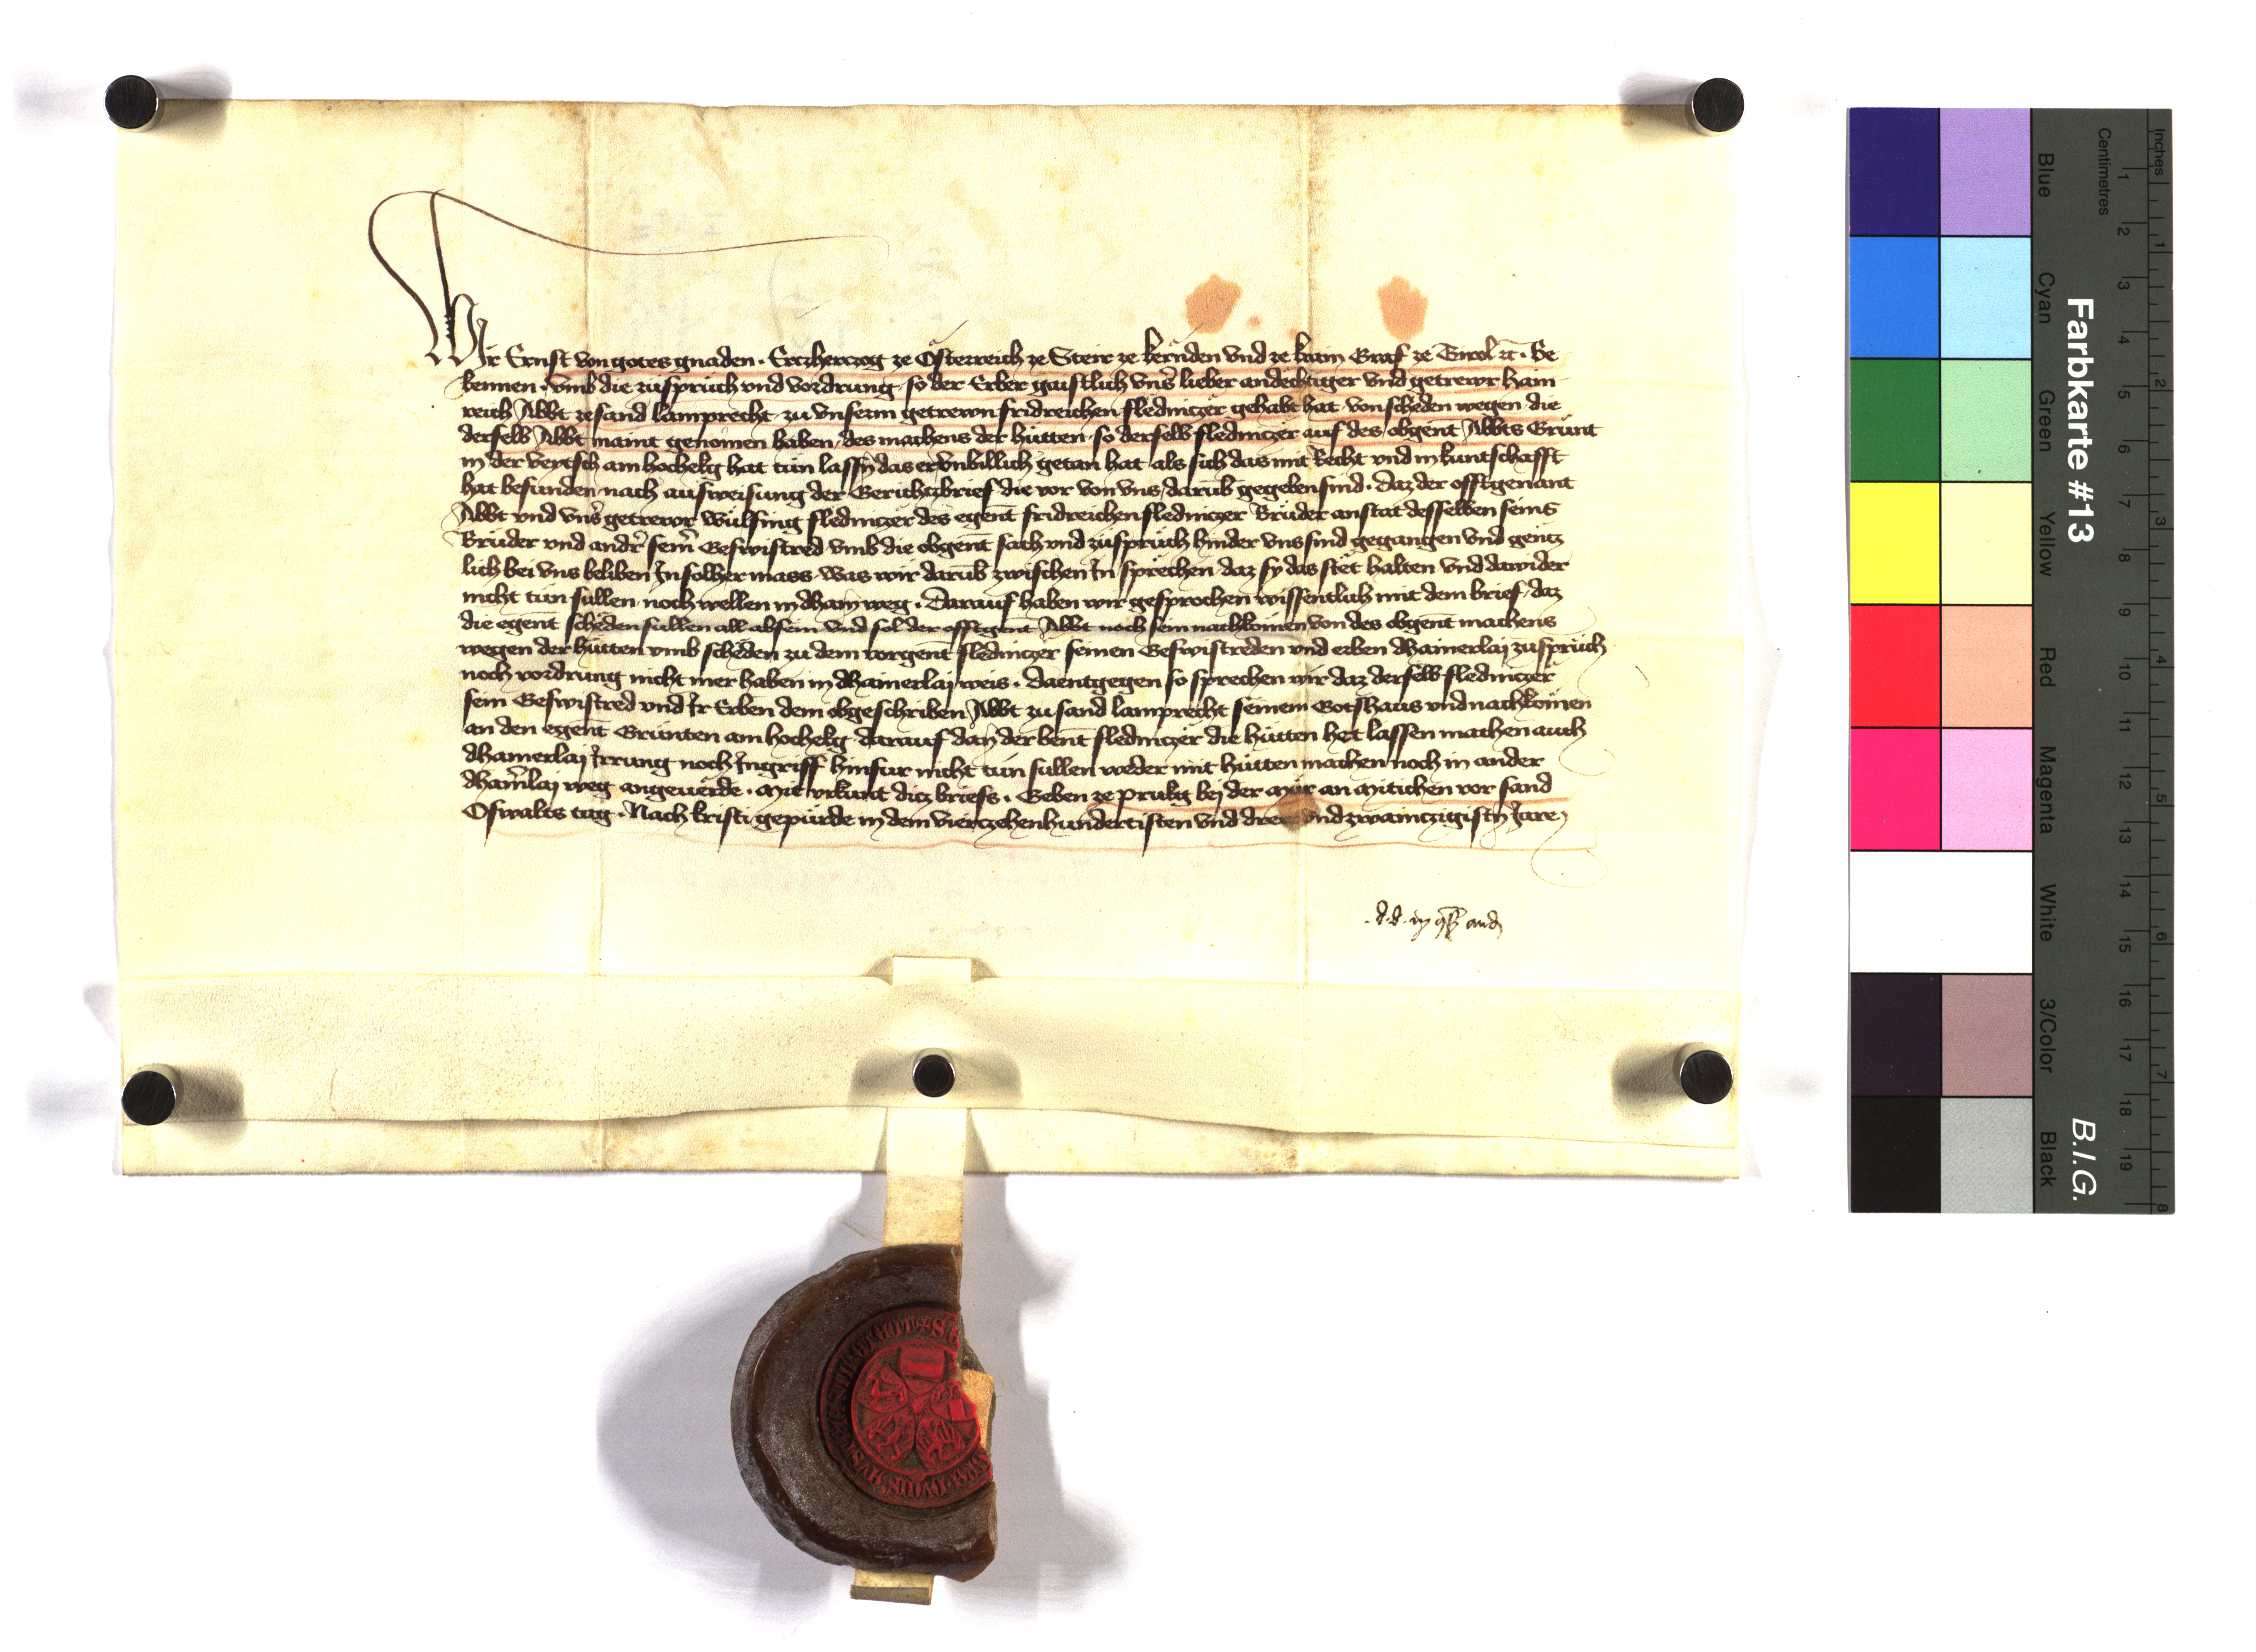 Wir Ernst von gotes gnaden · Erczherczog ze Österreich ze Steir ze kernden vnd ze krain Graf ze Tirol ꝛc̄ · Be
kennen · vmb die zuspruch vnd vordrung · so der Erber gaistlich vns̄ lieber andechtiger vnd getrewr hain
reich Abbt ze sand lamprecht zu vnserm getrewn fridreichen fledniczer gehabt hat von scheden wegen die
derselb Abbt maint genomen haben / des machens der hütten · so derselb fledniczer auf des / obgent̄ Abbts Grünt
in der veytsch am hochelg hat tun lassn̄ das er vnbillich getan hat als sich das mit Recht vnd in kuntschafft
hat befunden nach ausweisung der Gerichtzbrief die vor von vns / darub̄ gegeben sind · Daz der offtgenant
Abbt vnd vns̄ getrewr wülfing fledniczer des egent̄ fridreichen fledniczer Brüder anstat desselben seins
Brüder vnd andr̄ seīn Geswistred vmb die obgent̄ sach vnd zuspruch hinder vns sind gegangen vnd gentz
lich bei vns beliben In solher mass · was wir darub̄ zwischen In sprechen daz sy das stet halten vnd dawider
nicht tun sullen noch wellen in dhain weg · Darauf haben wir gesprochen wissentlich mit dem brief / daz
die egent̄ scheden sullen all absein vnd sol der offtgent̄ Abbt noch sein nachkomen von des obgent̄ machens
wegen der hütten vmb scheden zu dem vorgent̄ fledniczer seinen Geswistreden vnd erben dhainerlaj zuspruch
noch vordrung nicht mer haben in dhainerlaj weis · Daentgegen so sprechen wir daz derselb fledniczer
sein Geswistred vnd Ir Erben dem obgeschriben Abbt zu sand lamprecht seinem Gotshaus vnd nachkomen
an den egent̄ Grünten am hochelg darauf dan̄ der bent̄ fledniczer die hütten het lassen machen auch
dhainerlaj Irrung noch Ingriff hinfur nicht tun sullen weder mit hütten machen noch in ander
dham̄laj weg angeuerde · Mit vrkunt ditz briefs · Geben ze prukg bej der Mür an Mitichen vor sand
Oswalts tag · Nach kristi gepürde in dem vierczehenhundertisten vnd dreu vnd zwainczigistn̄ Jare
d · d · in
Farbkarte #13
B.I.G.
Inches
Centimetres
1 2 3 4 5 6 7 8 9 10 11 12 13 14 15 16 17 18 19
1 2 3 4 5 6 7 8
Blue
Cyan
Green
Yellow
Red
Magenta
White
3/Color
Black